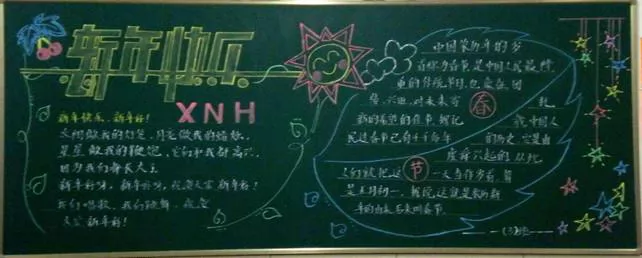 新年快乐
XNH
新年快乐,新年好!
太阳做我的灯笼,月亮做我的
星星做我的鞭炮,它们和我都高兴,
因为我们都长大了
新年好呀,新年好呀,祝贺大家新年好!
我们唱歌,我们跳舞,
大家新年好!
中国农历年的岁
首称为春节是中国人民最
重的传统节日,也象征团
结、兴旺,对未来寄
新的希望的佳节。据记
我中国人
民过春节已有4千多年
的历史,它是由
虞舜兴起的
人们就把这
一天当作岁首,
是正月初一,据说这就是农历新
年的由来后来叫春节
春
节